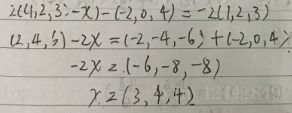 2((1,2,3)-x)-(-2,0,4)=-2(1,2,3)
(2,4,6)-2x=(-2,-4,-6)+(-2,0,4)
-2x=(-6,-8,-8)
x=(3,4,4)